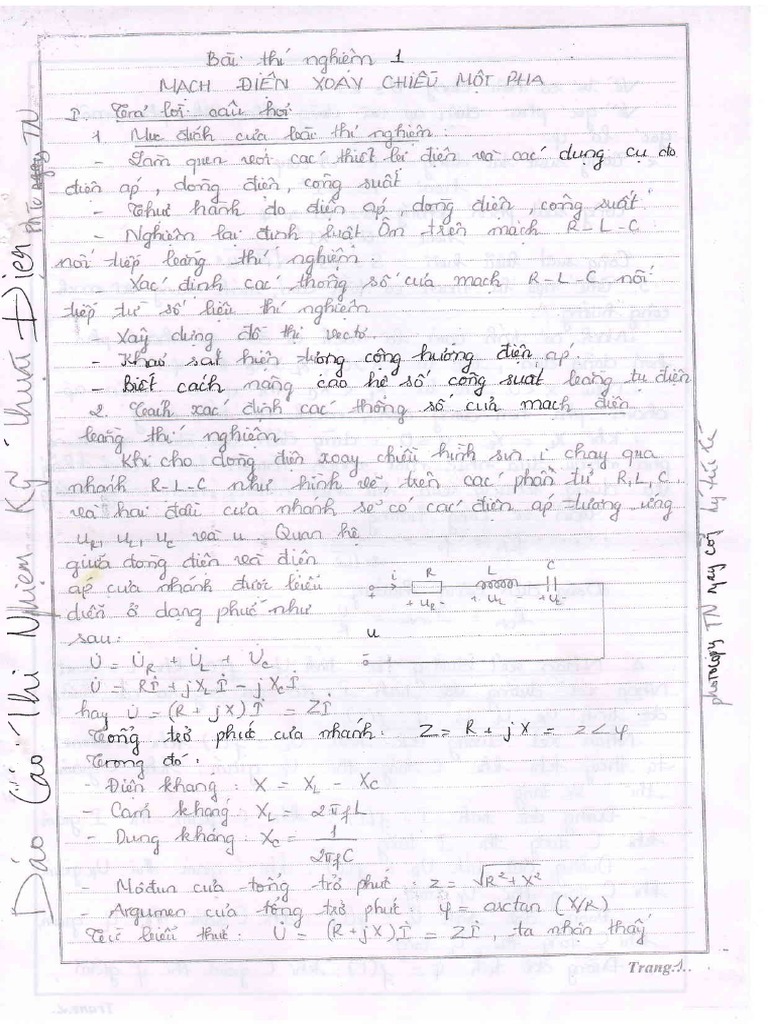 Bài thí nghiệm 1
MẠCH ĐIỆN XOAY CHIỀU MỘT PHA
I. Trả lời câu hỏi
1. Mục đích của bài thí nghiệm:
- Làm quen với các thiết bị điện và các dụng cụ đo
điện áp, dòng điện, công suất
- Thực hành đo điện áp, dòng điện, công suất.
- Nghiệm lại định luật Ôm trên mạch R-L-C
nối tiếp bằng thí nghiệm.
Xác định các thông số của mạch R-L-C nối
tiếp từ số liệu thí nghiệm
Xây dựng đồ thị vectơ.
- Khảo sát hiện tượng cộng hưởng điện áp.
- Biết cách nâng cao hệ số công suất bằng tụ điện
2. Cách xác định các thông số của mạch điện
bằng thí nghiệm
Khi cho dòng điện xoay chiều hình sin i chạy qua
nhánh R-L-C như hình vẽ, trên các phần tử R, L, C
và hai đầu của nhánh sẽ có các điện áp tương ứng
uR, uL, uC và u. Quan hệ
giữa dòng điện và điện
áp của nhánh được biểu
diễn ở dạng phức như
sau:
i R L C
+ uR - + uL - + uC -
u
U̇ = U̇R + U̇L + U̇C
U̇ = Rİ + jXLİ - jXCİ
hay U̇ = (R + jX)İ = Zİ
Tổng trở phức của nhánh: Z = R + jX = z∠φ
Trong đó:
- Điện kháng: X = XL - XC
- Cảm kháng: XL = 2πfL
- Dung kháng: XC = 1/2πfC
- Môđun của tổng trở phức: z = √R²+X²
- Argumen của tổng trở phức: φ = arctan (X/R)
Từ biểu thức: U̇ = (R+jX)İ = Zİ, ta nhận thấy
Trang:1..
Báo Cáo Thí Nghiệm Kỹ Thuật Điện
photocopy TN